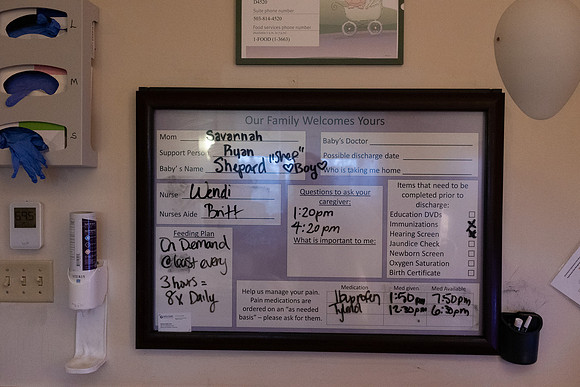 L
M
S
D4520
Suite phone number
865-614-4520
Food services phone number
1-FOOD (1-3663)
Our Family Welcomes Yours
Mom Savannah
Support Person Ryan
Baby's Name Shepard "Shep" ♡Boy♡
Baby's Doctor
Possible discharge date
Who is taking me home
Nurse Wendi
Nurses Aide Britt
Questions to ask your caregiver:
1:20pm
4:20pm
What is important to me:
Items that need to be
completed prior to
discharge:
Education DVDs
Immunizations X
Hearing Screen X
Jaundice Check
Newborn Screen
Oxygen Saturation
Birth Certificate
Feeding Plan
On Demand
@ least every
3 hours =
8x Daily
Help us manage your pain.
Pain medications are
ordered on an "as needed
basis" – please ask for them.
Medication Med given Med Available
Ibuprofen 1:50pm 7:50pm
Tylenol 12:30pm 6:30pm